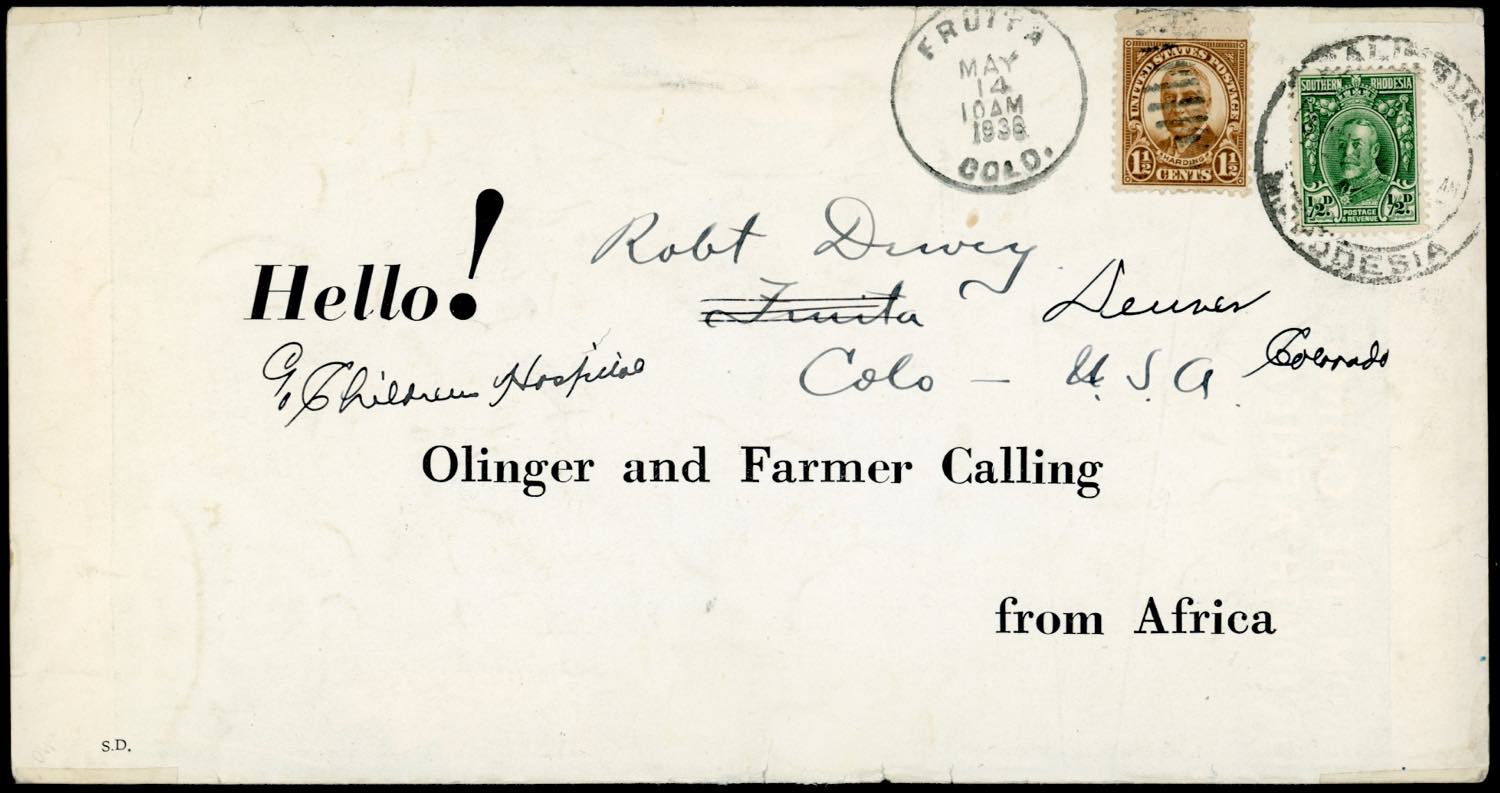 FRUITA
MAY
14
10 AM
1936
COLO.
UNITED STATES POSTAGE
HARDING
1½ 1½
CENTS
SALISBURY
RHODESIA
AM
SOUTHERN RHODESIA
½D. ½D.
POSTAGE
& REVENUE
Hello!
Robt Dewey
Fruita Denver
Colo — U.S.A. Colorado
% Childrens Hospital
Olinger and Farmer Calling
from Africa
S.D.